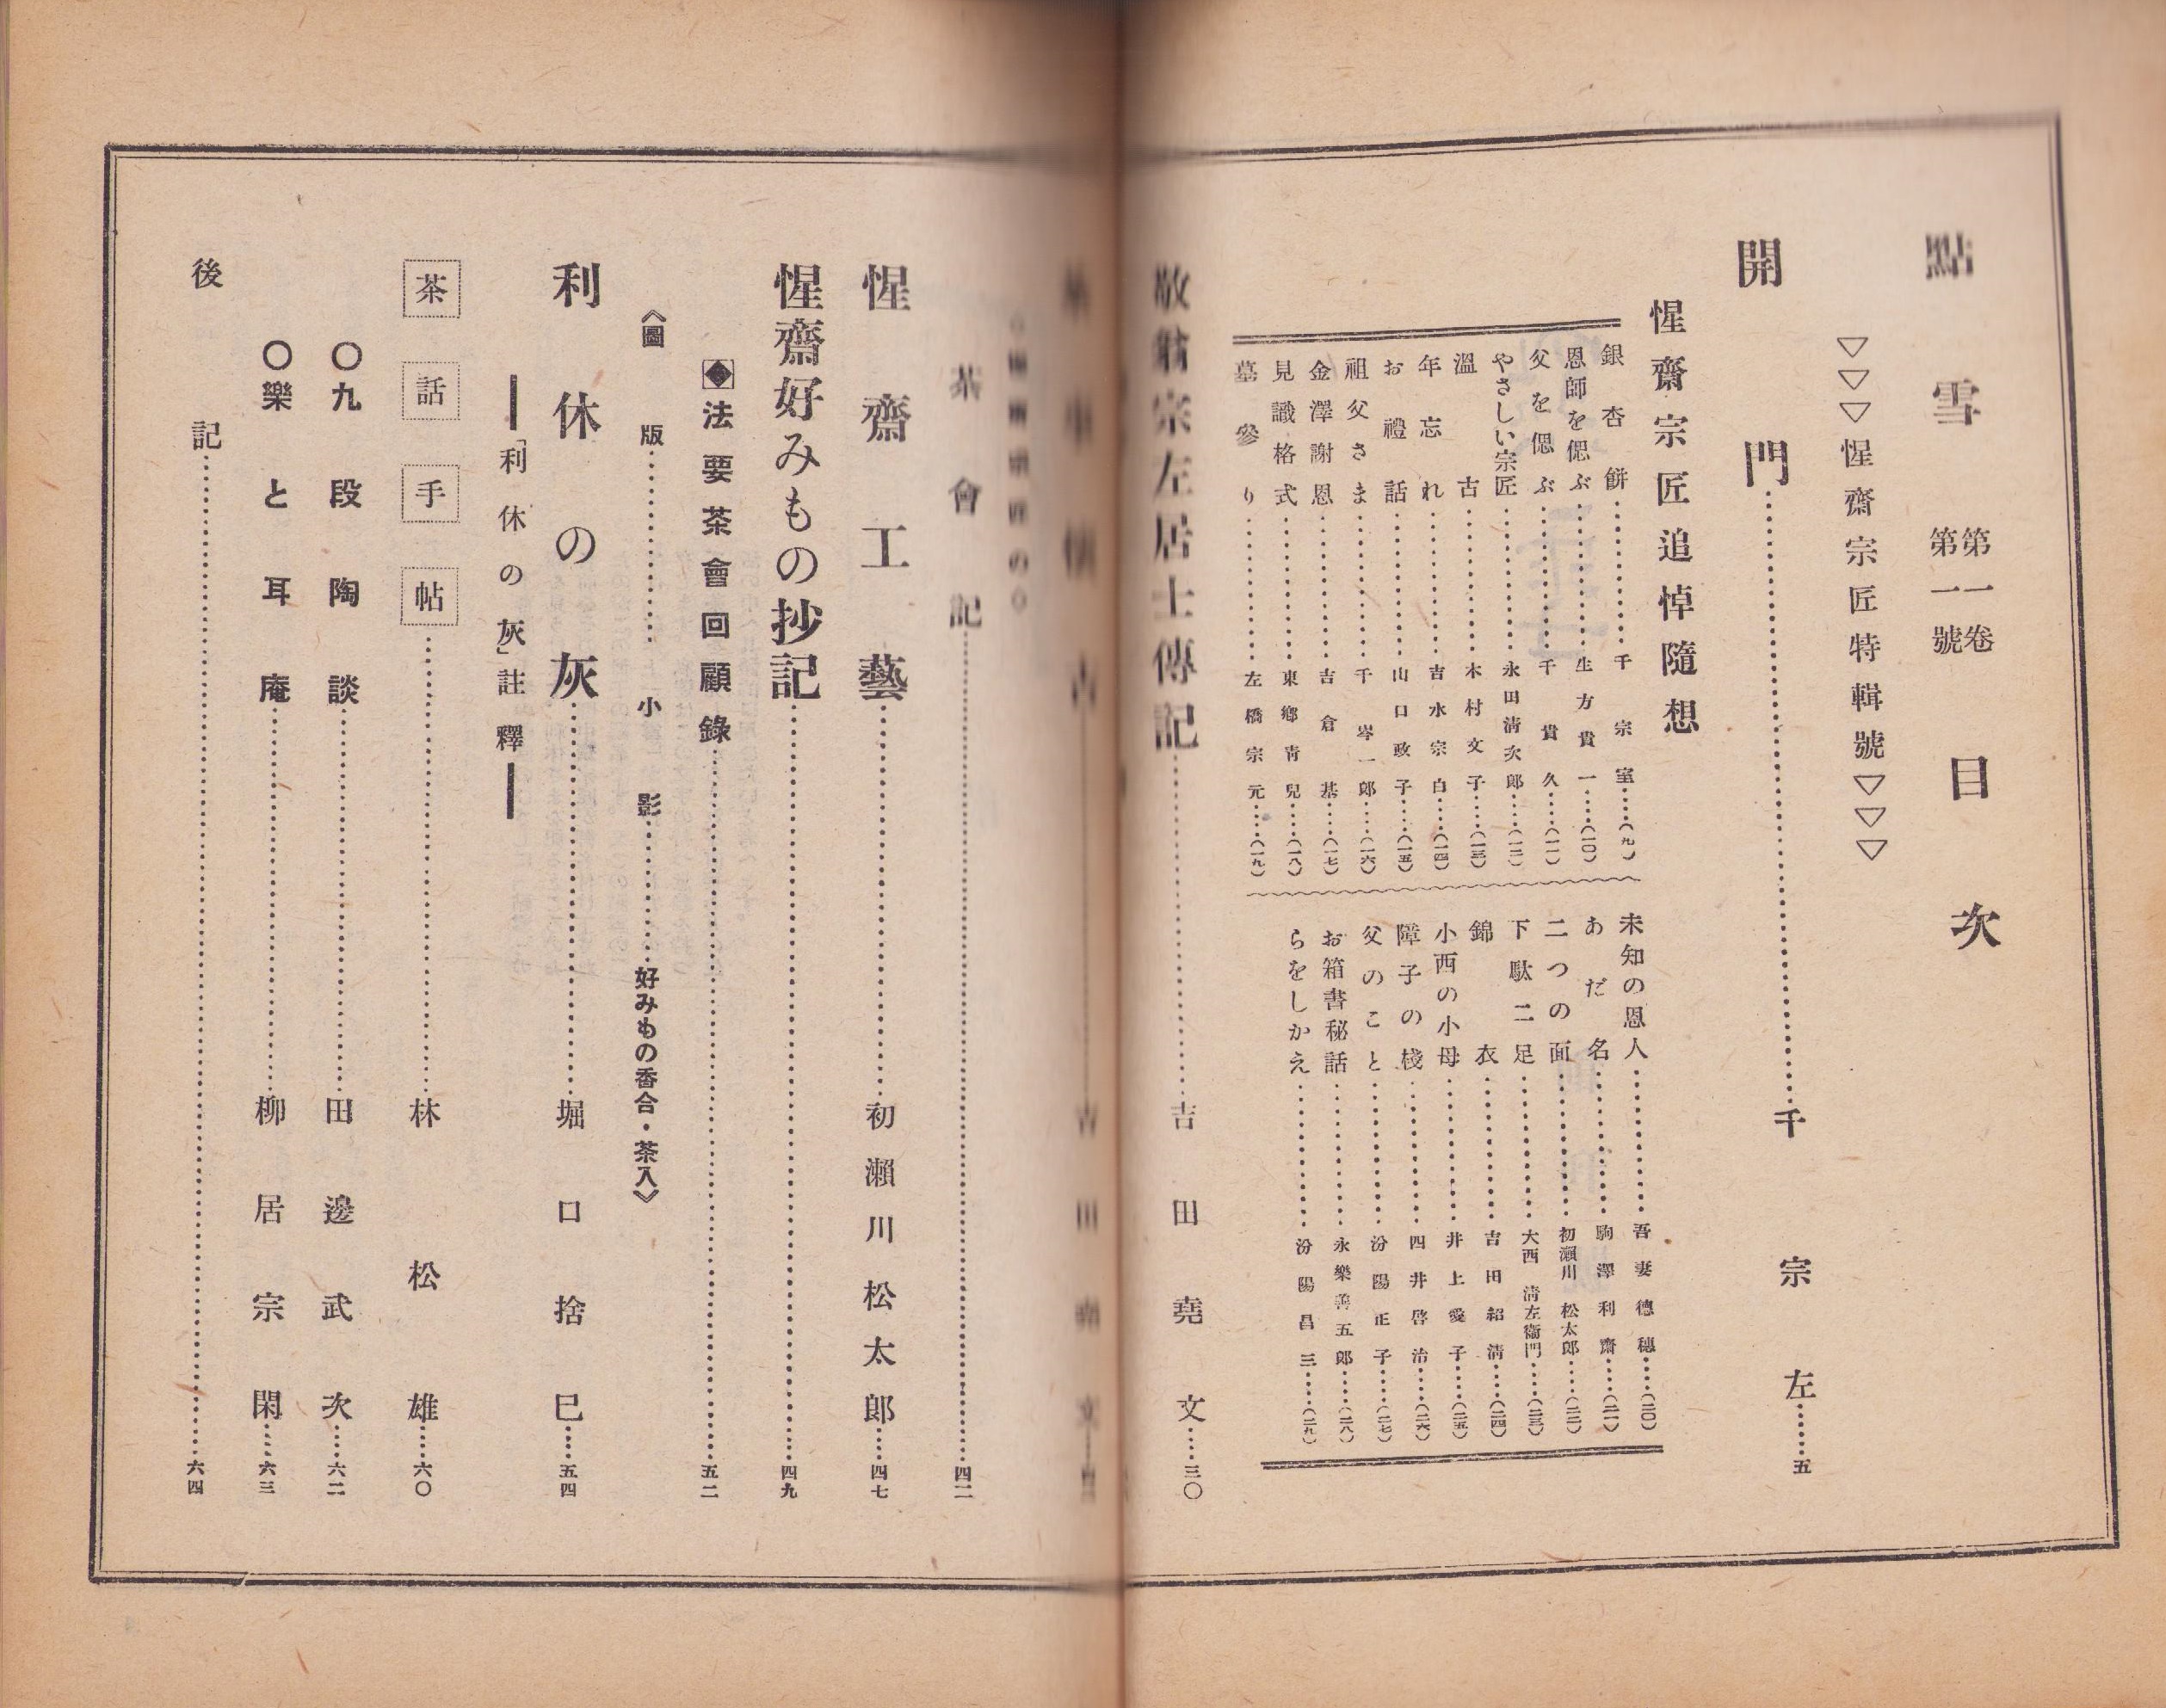 點雪 第一卷 第一號 目次
▽▽▽惺齋宗匠特輯號▽▽▽
開門……千宗左……五
惺齋宗匠追悼隨想
銀杏餅……千宗室……(九)
恩師を偲ぶ……生方貴一……(一〇)
父を偲ぶ……千貴久……(一一)
やさしい宗匠……永田淸次郎……(一二)
溫古……木村文子……(一三)
年忘れ……吉水宗白……(一四)
お禮話……山口政子……(一五)
祖父さま……千岑一郎……(一六)
金澤謝恩……吉倉基……(一七)
見識格式……東鄕靑兒……(一八)
墓參り……左橋宗元……(一九)
未知の恩人……吾妻德穗……(二〇)
あだ名……駒澤利齋……(二一)
二つの面……初瀨川松太郎……(二二)
下駄二足……大西淸左衞門……(二三)
錦衣……吉田紹淸……(二四)
小西の小母……井上愛子……(二五)
障子の棧……四井啓治……(二六)
父のこと……汾陽正子……(二七)
お箱書秘話……永樂善五郎……(二八)
らをしかえ……汾陽昌三……(二九)
敬翁宗左居士傳記……吉田堯文……三〇
吉田堯文
茶會記……四二
惺齋工藝……初瀨川松太郎……四七
惺齋好みもの抄記……四九
◆法要茶會回顧錄……五二
《圖版……小影……好みもの香合・茶入》
利休の灰……堀口捨巳……五四
━「利休の灰」註釋━
茶話手帖……林松雄……六〇
〇九段陶談……田邊武次……六二
〇樂と耳庵……柳居宗閑……六三
後記……六四